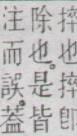 捽也捽卽
除也是皆
注而誤蓋